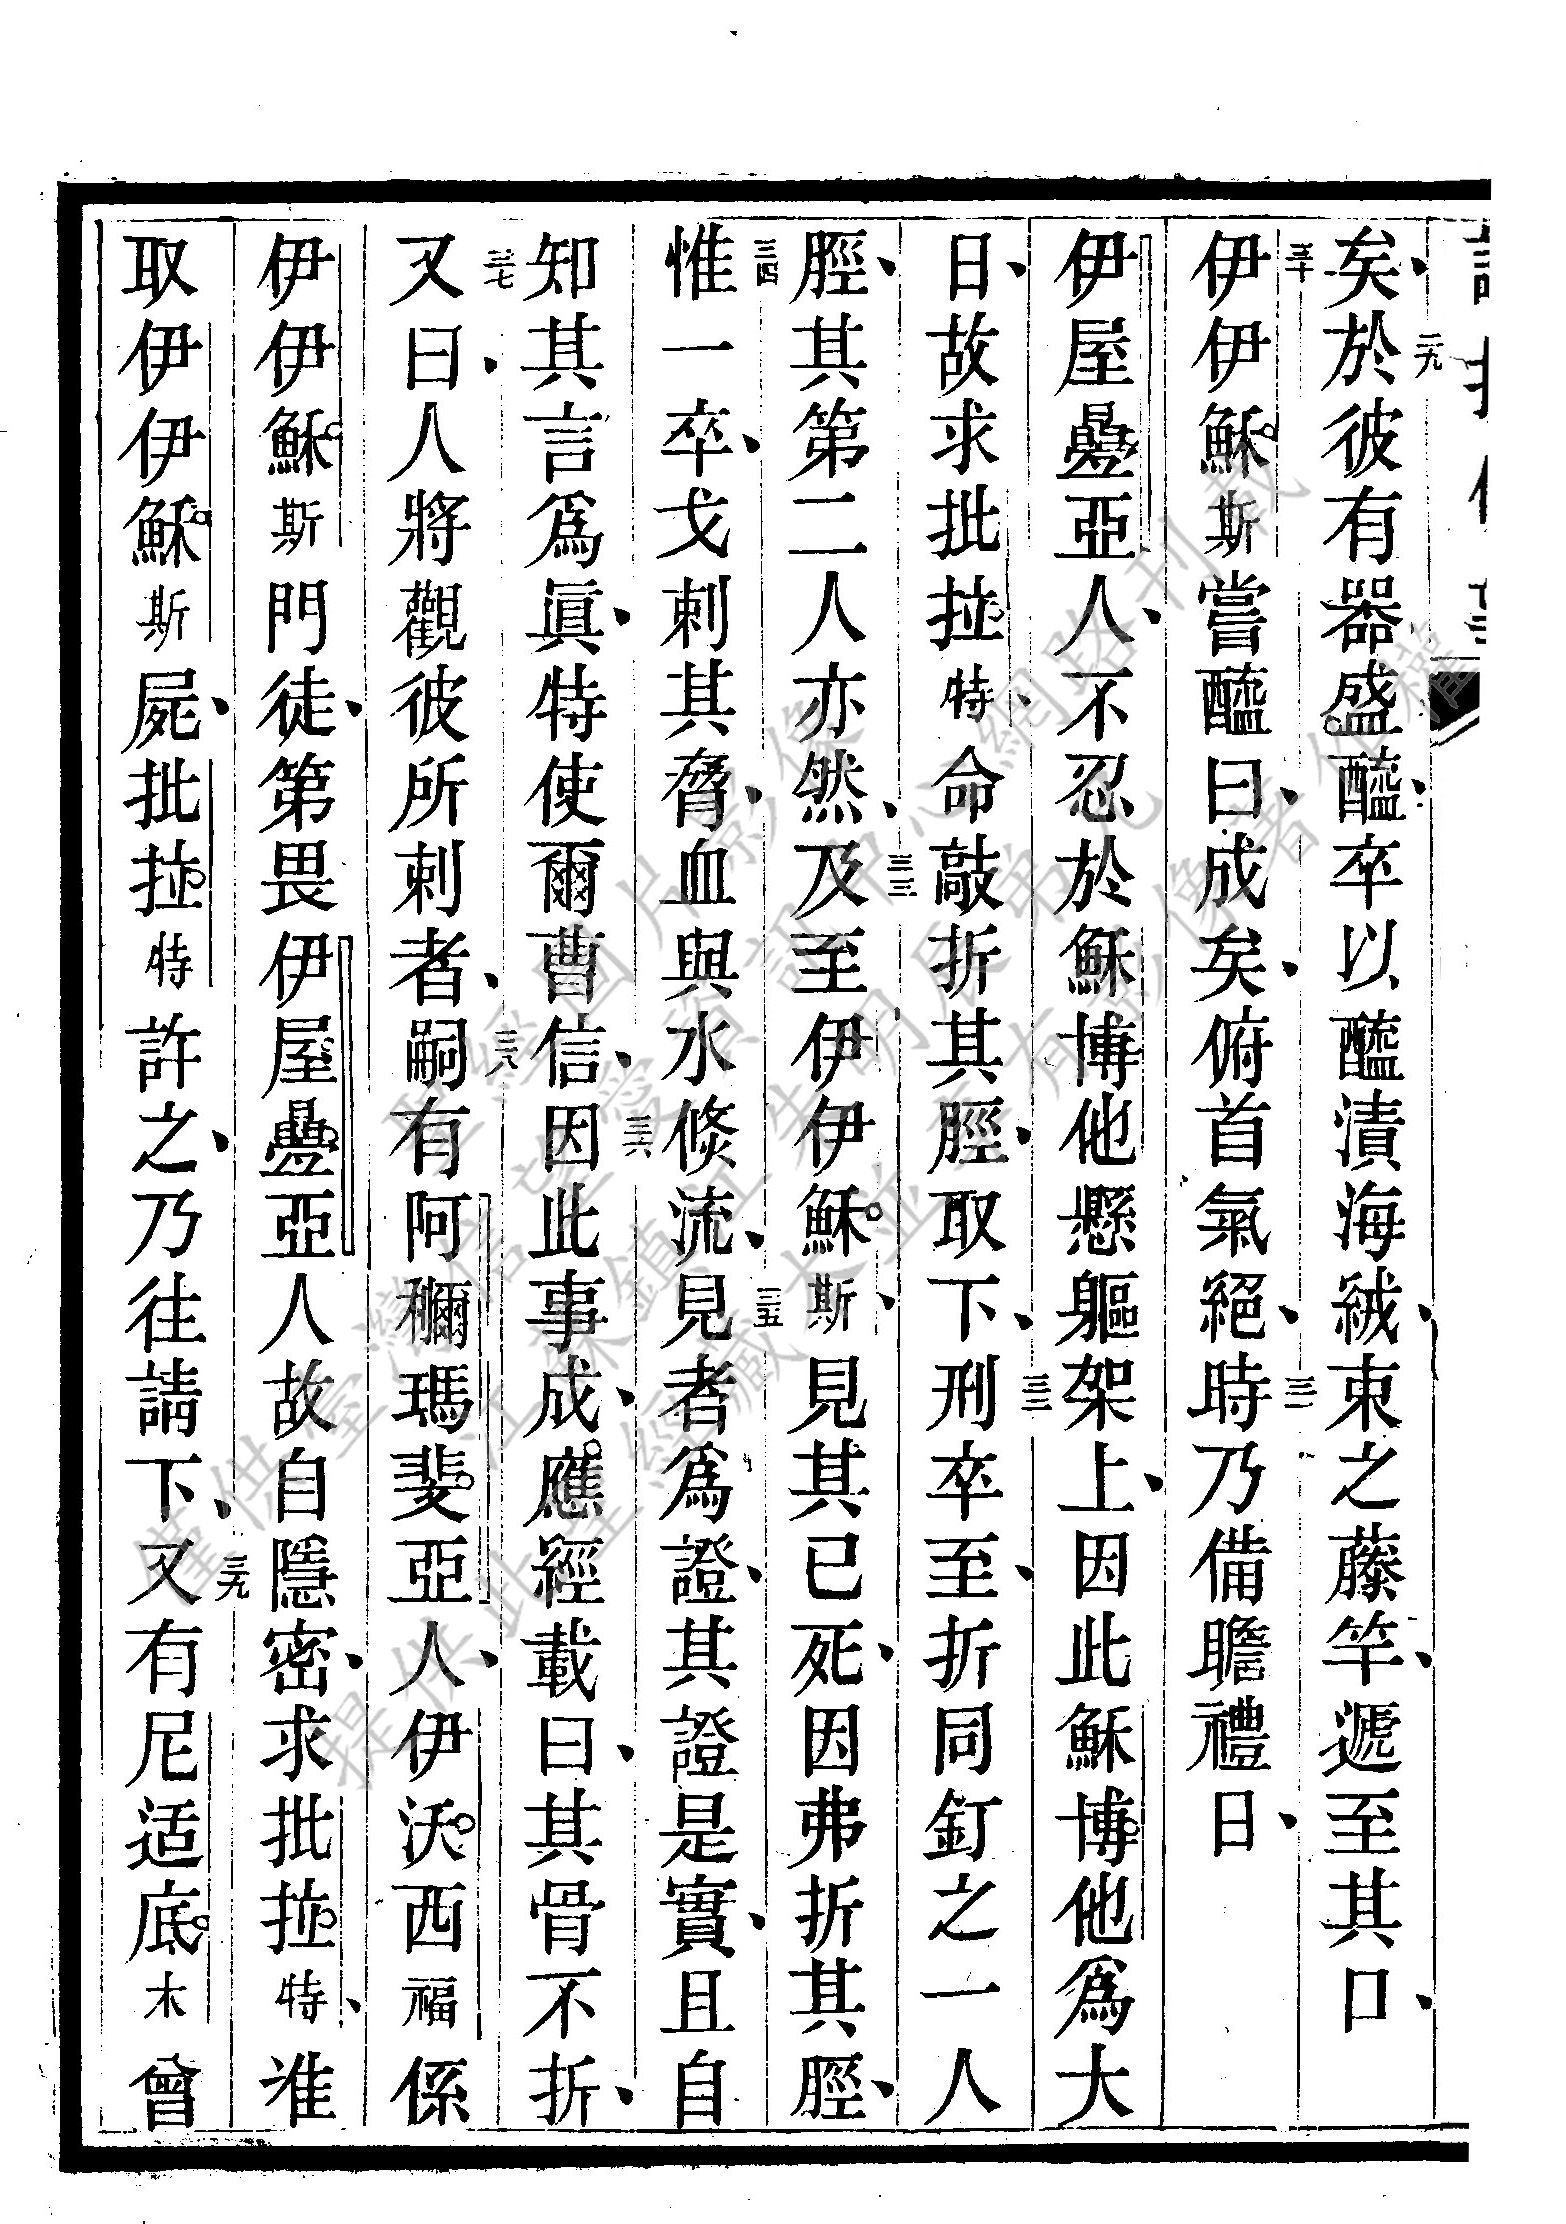 矣、二九於彼有器盛醯、卒以醯漬海絨、束之藤竿、遞至其口、
三十伊伊穌斯嘗醯曰、成矣、俯首氣絕、三一時乃備瞻禮日、
伊屋疊亞人、不忍於穌博他懸軀架上、因此穌博他爲大
日、故求批拉特、命敲折其脛、取下、三二刑卒至、折同釘之一人
脛、其第二人亦然、三三及至伊伊穌斯、見其已死、因弗折其脛、
三四惟一卒、戈刺其脅、血與水倏流、三五見者爲證、其證是實、且自
知其言爲眞、特使爾曹信、三六因此事成、應經載曰、其骨不折、
三七又曰、人將觀彼所刺者、三八嗣有阿穪瑪斐亞人、伊沃西福係
伊伊穌斯門徒、第畏伊屋疊亞人、故自隱密、求批拉特、准
取伊伊穌斯屍、批拉特許之、乃往請下、三九又有尼适底木曾